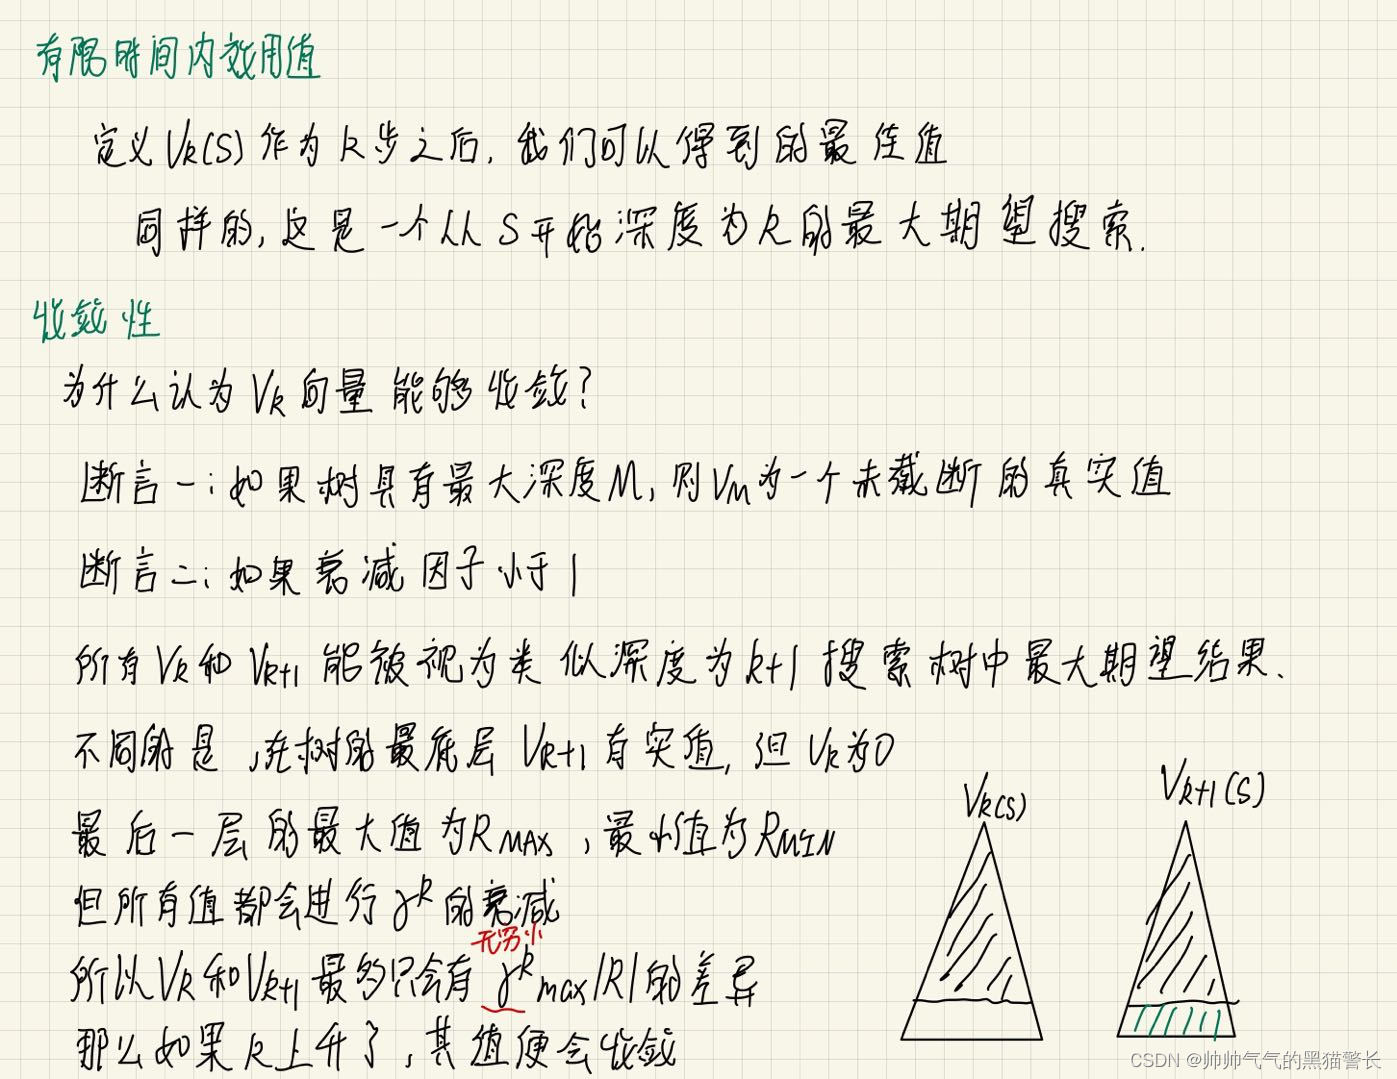 有限时间内效用值
定义Vk(S)作为k步之后,我们可以得到的最佳值
同样的,这是一个从S开始深度为k的最大期望搜索.
收敛性
为什么认为Vk向量能够收敛?
断言一:如果树具有最大深度M,则VM为一个未截断的真实值
断言二:如果衰减因子小于1
所有Vk和Vk+1能被视为类似深度为k+1搜索树中最大期望结果.
不同的是,在树的最底层Vk+1有实值,但Vk为0
最后一层的最大值为RMAX,最小值为RMIN
但所有值都会进行γ^k的衰减
无穷小
所以Vk和Vk+1最多只会有γ^k max|R|的差异
那么如果k上升了,其值便会收敛
Vk(s)
Vk+1(S)
CSDN @帅帅气气的黑猫警长